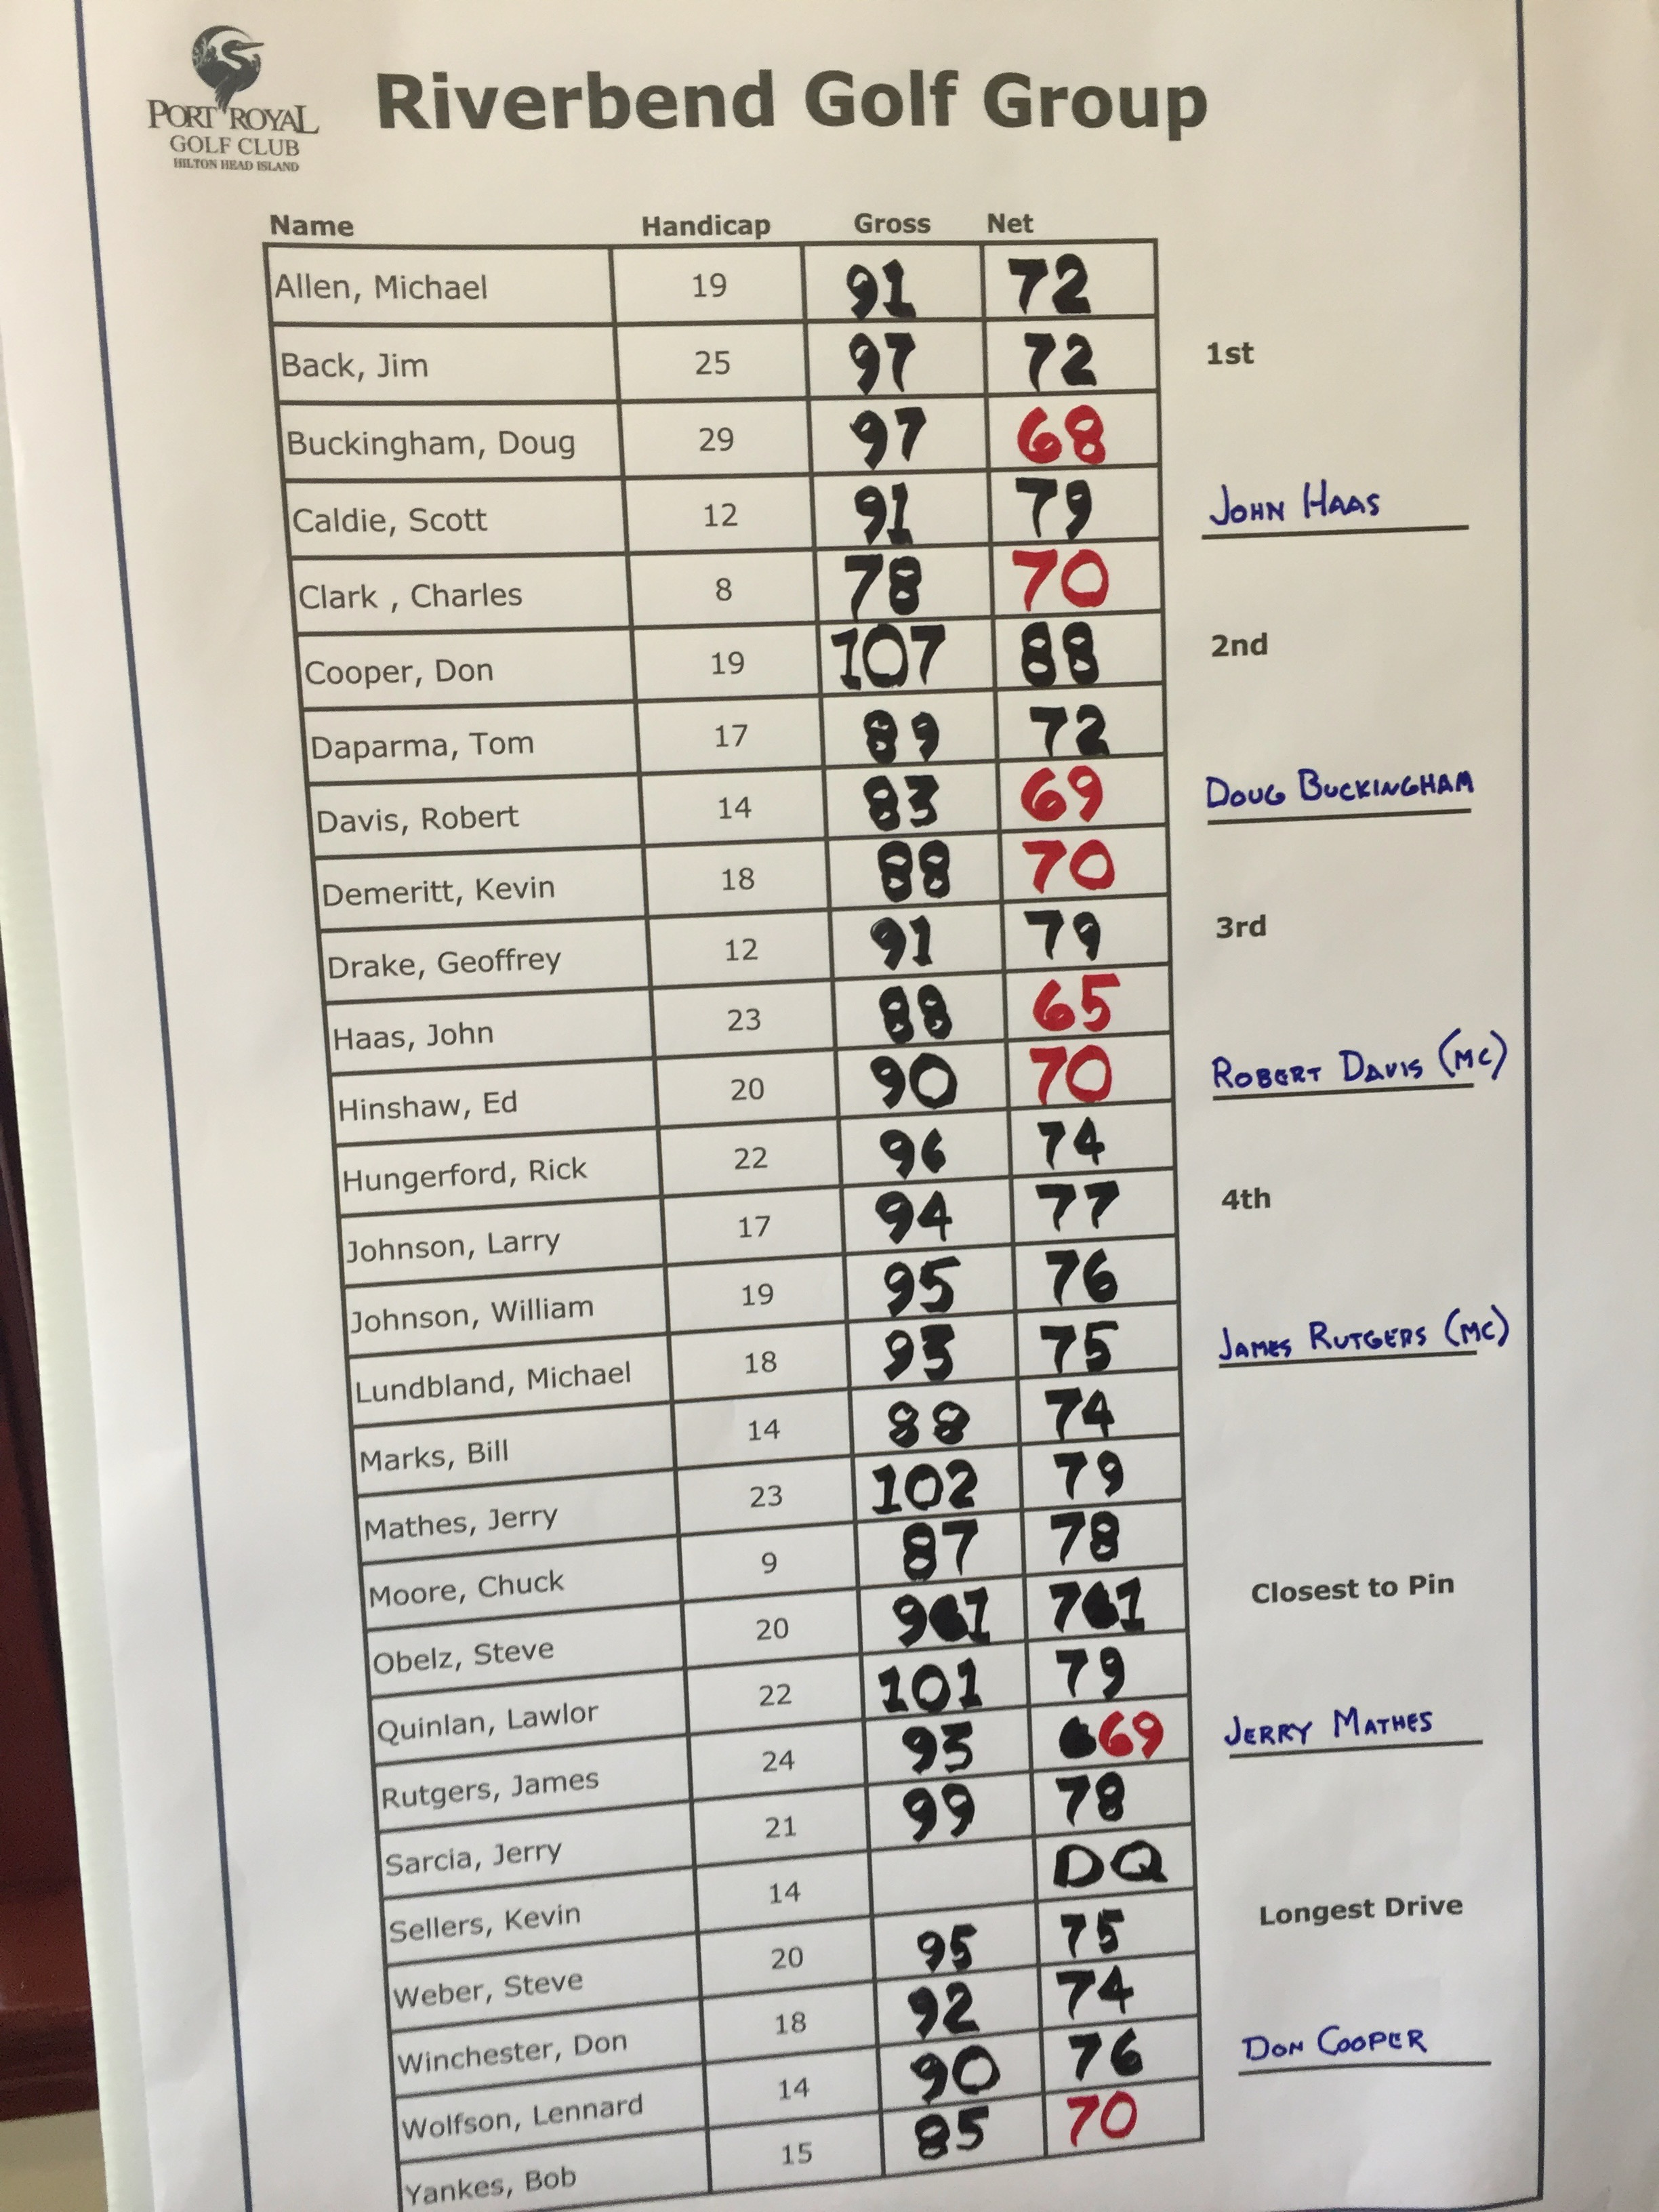 PORT ROYAL
GOLF CLUB
HILTON HEAD ISLAND
Riverbend Golf Group
Name Handicap Gross Net
Allen, Michael 19 91 72
Back, Jim 25 97 72
Buckingham, Doug 29 97 68
Caldie, Scott 12 91 79
Clark , Charles 8 78 70
Cooper, Don 19 107 88
Daparma, Tom 17 89 72
Davis, Robert 14 83 69
Demeritt, Kevin 18 88 70
Drake, Geoffrey 12 91 79
Haas, John 23 88 65
Hinshaw, Ed 20 90 70
Hungerford, Rick 22 96 74
Johnson, Larry 17 94 77
Johnson, William 19 95 76
Lundbland, Michael 18 93 75
Marks, Bill 14 88 74
Mathes, Jerry 23 102 79
Moore, Chuck 9 87 78
Obelz, Steve 20 91 71
Quinlan, Lawlor 22 101 79
Rutgers, James 24 93 69
Sarcia, Jerry 21 99 78
Sellers, Kevin 14 DQ
Weber, Steve 20 95 75
Winchester, Don 18 92 74
Wolfson, Lennard 14 90 76
Yankes, Bob 15 85 70
1st
JOHN HAAS
2nd
DOUG BUCKINGHAM
3rd
ROBERT DAVIS (MC)
4th
JAMES RUTGERS (MC)
Closest to Pin
JERRY MATHES
Longest Drive
DON COOPER